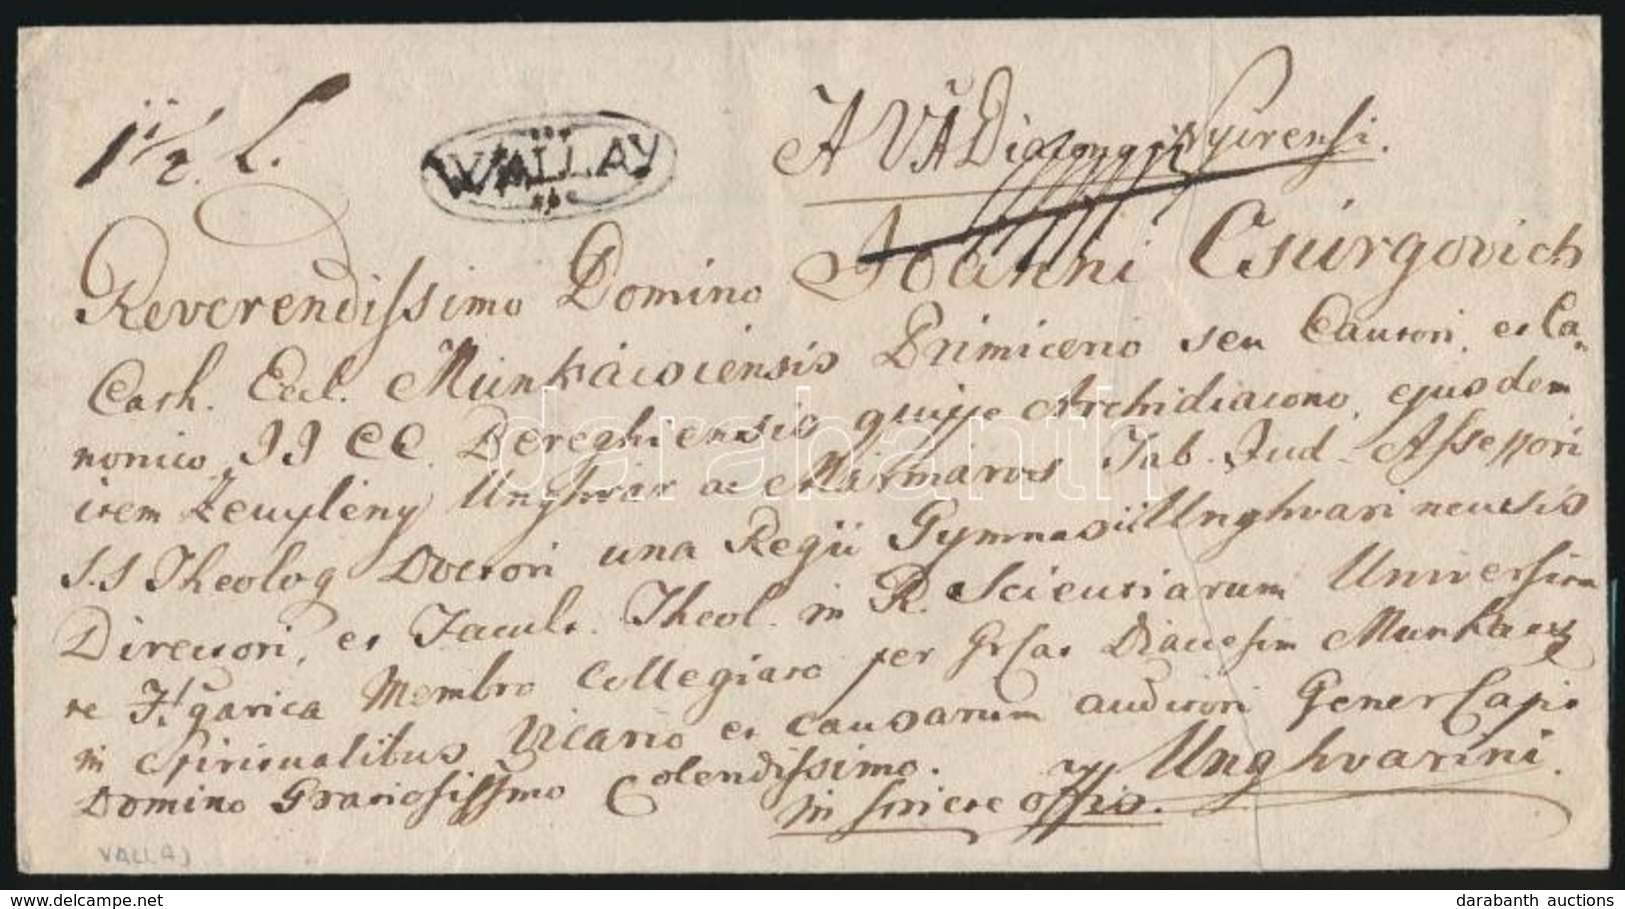 1 1/2 L.
WALLAY
A VA Diacono Nyirensi.
Reverendissimo Domino Joanni Csurgovich
Cath. Eccl. Munkácsiensis Primicerio seu Cantori, et Ca-
nonico, II CC. Bereghiensis quippe Archidiacono, ejusdem
item Zemplény Unghvár ac Mármaros Tab. Jud. Assessori
S.S Theolog Doctori una Regii Gymnasii Unghvarinensis
Directori, et Facult. Theol. in R. Scientiarum Universita
te Hgarica Membro Collegiato per Diaecesim Munkacs
in Spiritualibus Vicario et causarum auditori Gener Capit
Domino Gratiosissimo Colendissimo. Unghvarini.
in sincere offio.
VALLAJ
darabanth
www.delcampe.net
darabanth auctions